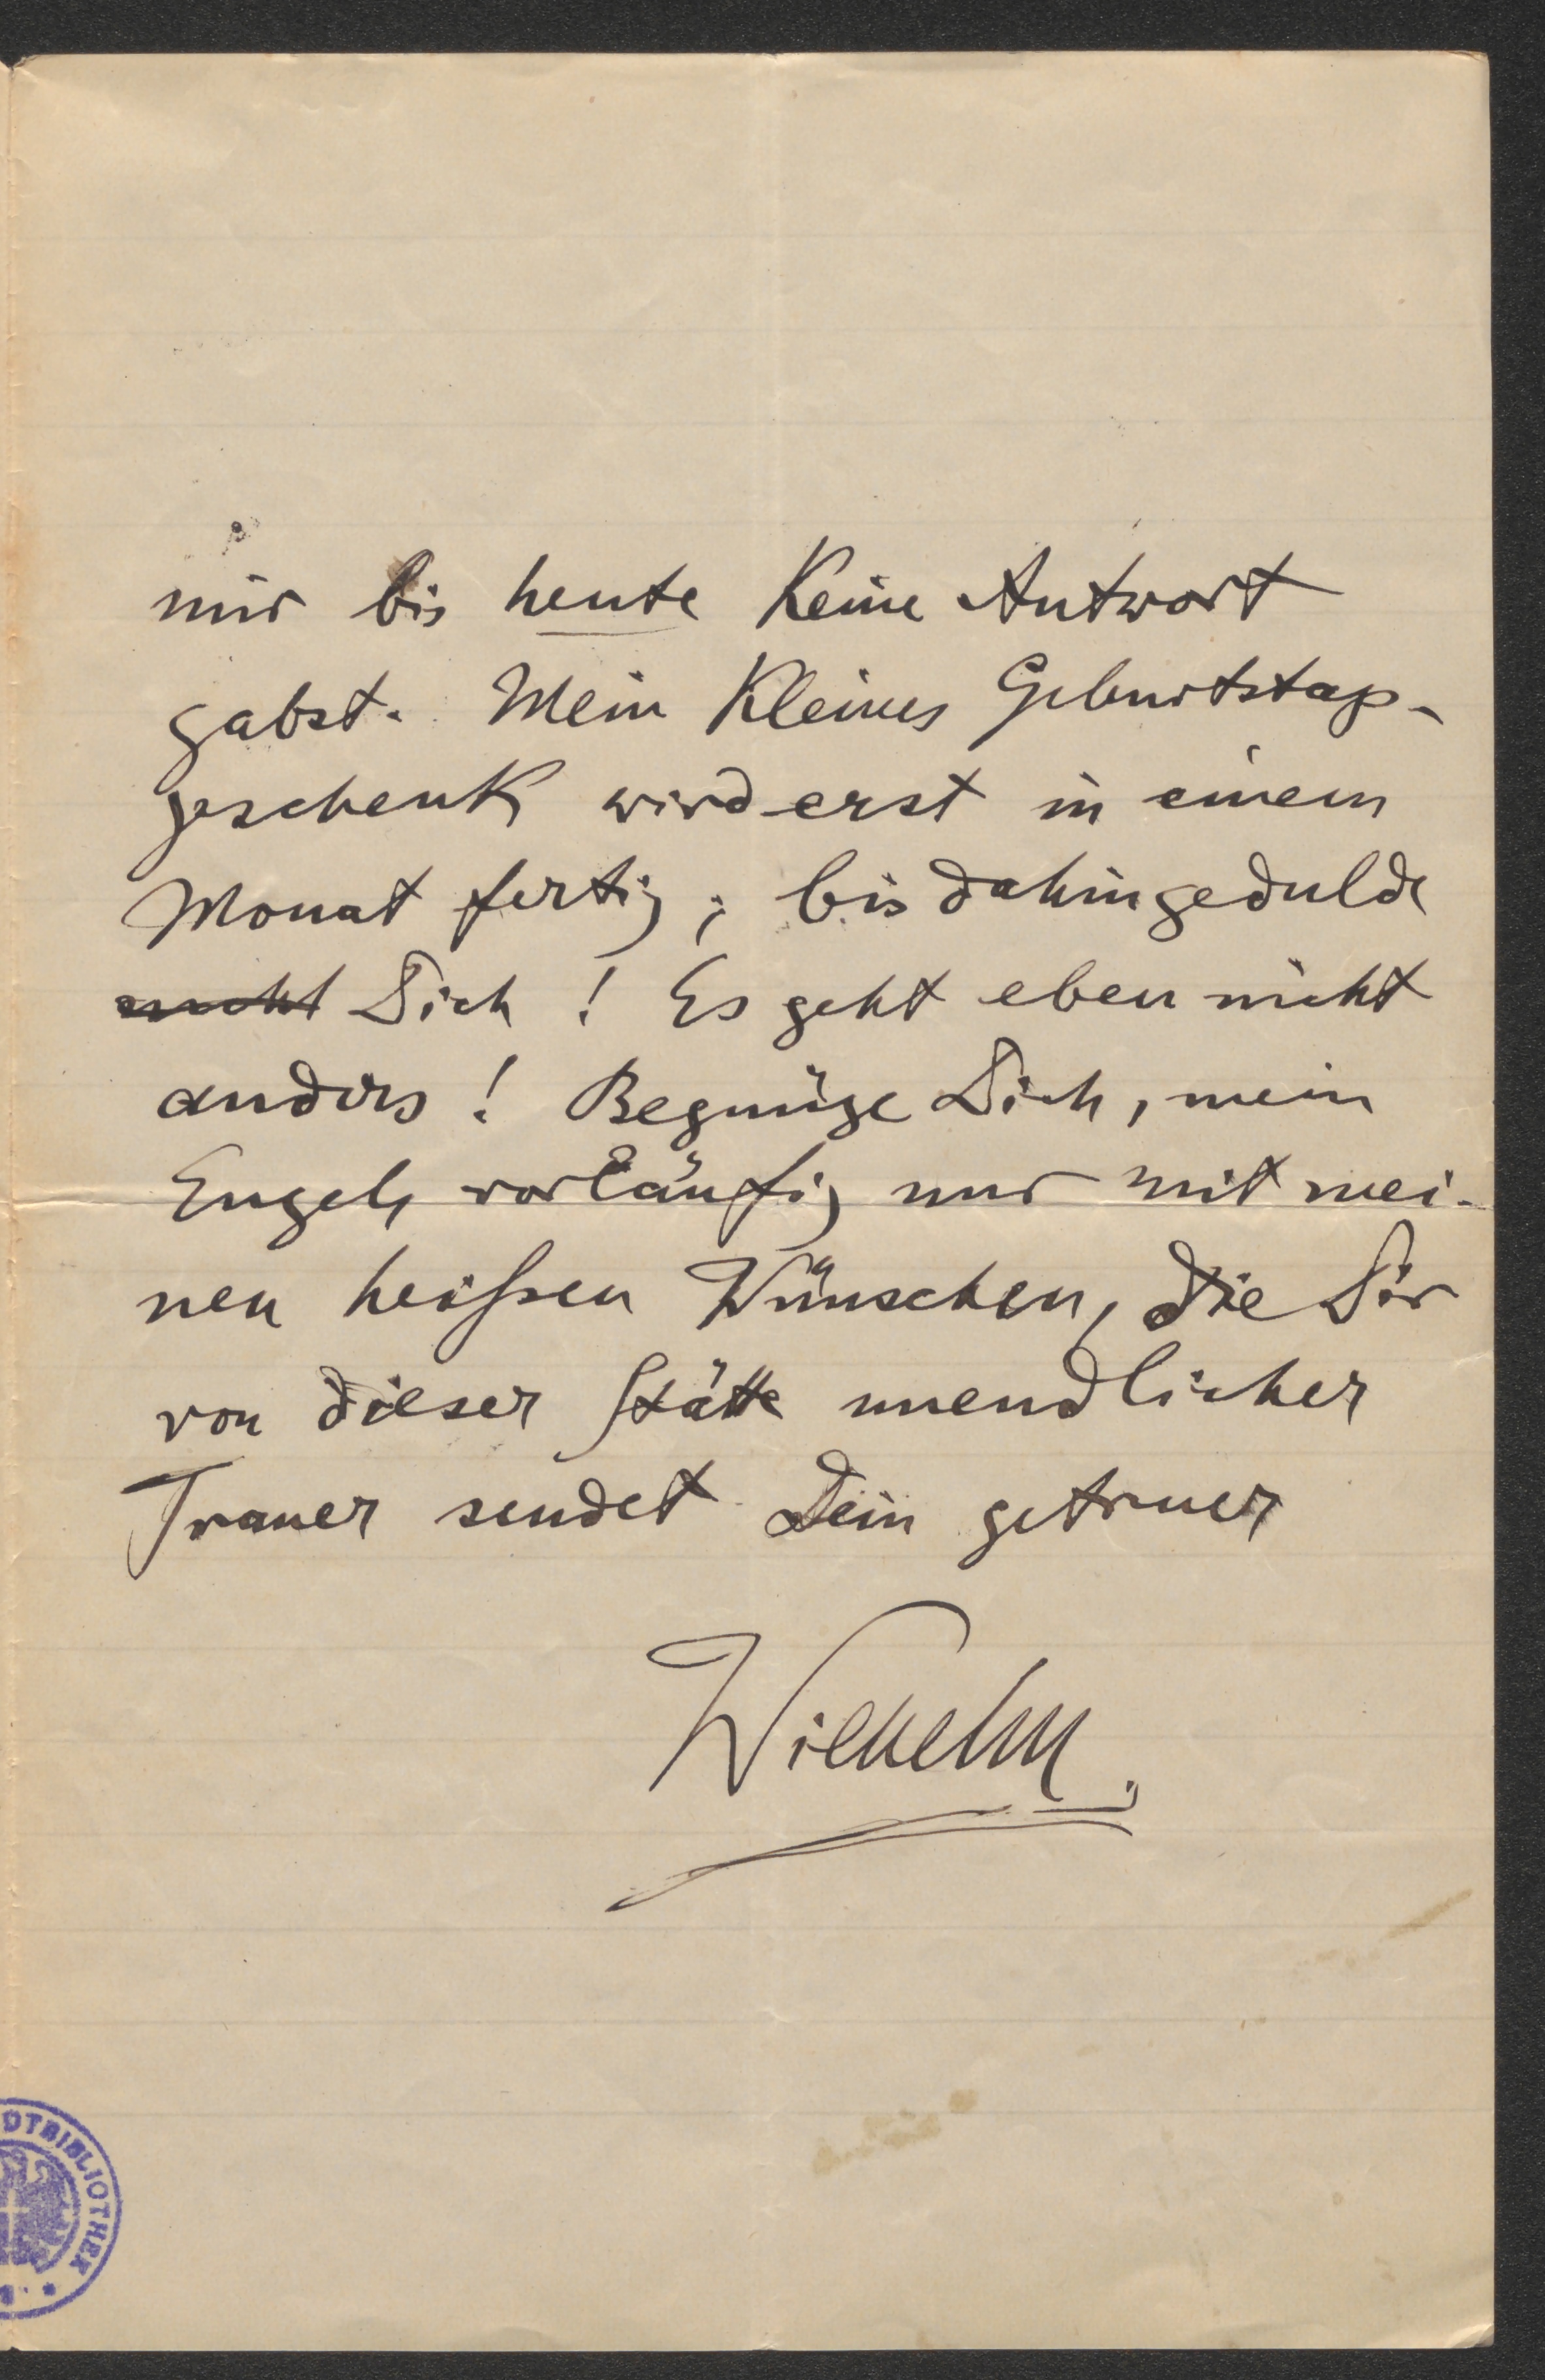 mir bis heute keine Antwort
gabst. Mein kleines Geburtstags-
geschenk wird erst in einem
Monat fertig; bis dahin gedulde
nicht Dich! Es geht eben nicht
anders! Begnüge Dich, mein
Engel, vorläufig nur mit mei-
nen heißen Wünschen, die Dir
von dieser Stätte unendlicher
Trauer sendet Dein getreuer
Wilhelm.
DTBIBLIOTHEK